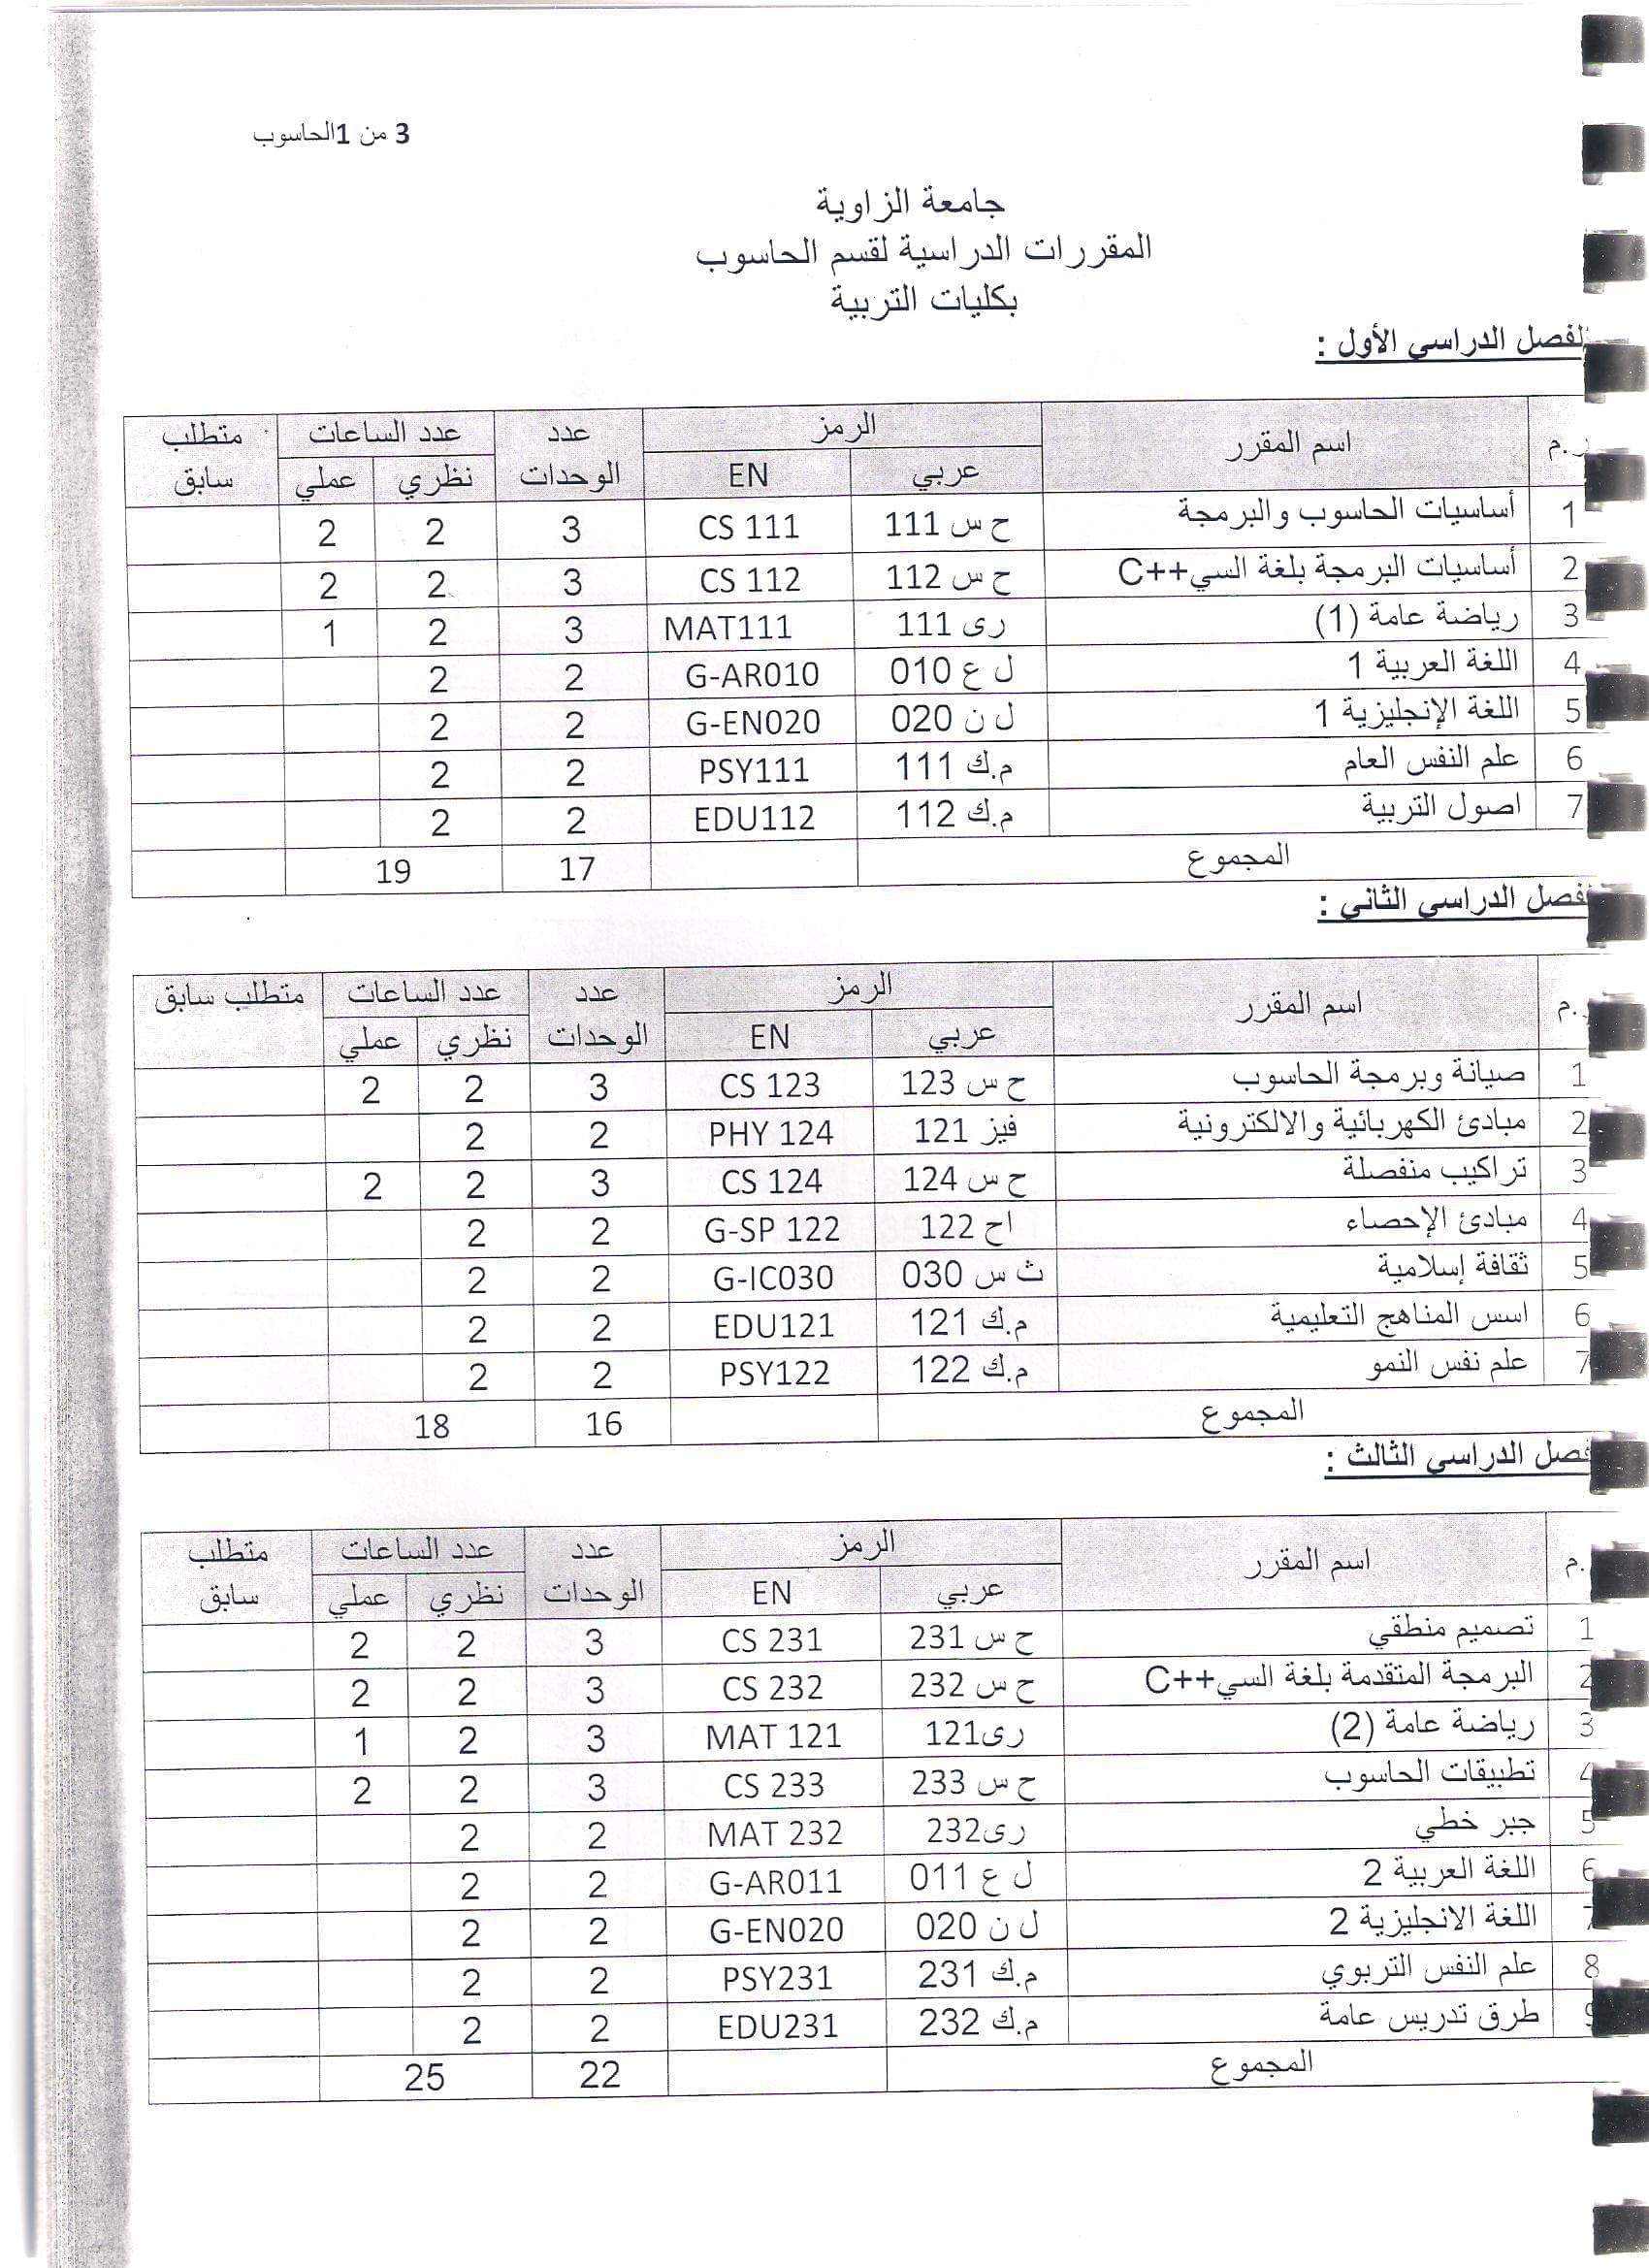 3 من 1الحاسوب
جامعة الزاوية
المقررات الدراسية لقسم الحاسوب
بكليات التربية
الفصل الدراسي الأول :
ر.م اسم المقرر الرمز عدد الوحدات عدد الساعات متطلب سابق
عربي EN نظري عملي
1 أساسيات الحاسوب والبرمجة ح س 111 CS 111 3 2 2
2 أساسيات البرمجة بلغة السي++C ح س 112 CS 112 3 2 2
3 رياضة عامة (1) رى 111 MAT111 3 2 1
4 اللغة العربية 1 ل ع 010 G-AR010 2 2
5 اللغة الإنجليزية 1 ل ن 020 G-EN020 2 2
6 علم النفس العام م.ك 111 PSY111 2 2
7 اصول التربية م.ك 112 EDU112 2 2
المجموع 17 19
فصل الدراسي الثاني :
م. اسم المقرر الرمز عدد الوحدات عدد الساعات متطلب سابق
عربي EN نظري عملي
1 صيانة وبرمجة الحاسوب ح س 123 CS 123 3 2 2
2 مبادئ الكهربائية والالكترونية فيز 121 PHY 124 2 2
3 تراكيب منفصلة ح س 124 CS 124 3 2 2
4 مبادئ الإحصاء اح 122 G-SP 122 2 2
5 ثقافة إسلامية ث س 030 G-IC030 2 2
6 اسس المناهج التعليمية م.ك 121 EDU121 2 2
7 علم نفس النمو م.ك 122 PSY122 2 2
المجموع 16 18
فصل الدراسي الثالث :
م. اسم المقرر الرمز عدد الوحدات عدد الساعات متطلب سابق
عربي EN نظري عملي
1 تصميم منطقي ح س 231 CS 231 3 2 2
2 البرمجة المتقدمة بلغة السي++C ح س 232 CS 232 3 2 2
3 رياضة عامة (2) رى121 MAT 121 3 2 1
4 تطبيقات الحاسوب ح س 233 CS 233 3 2 2
5 جبر خطي رى232 MAT 232 2 2
6 اللغة العربية 2 ل ع 011 G-AR011 2 2
7 اللغة الانجليزية 2 ل ن 020 G-EN020 2 2
8 علم النفس التربوي م.ك 231 PSY231 2 2
9 طرق تدريس عامة م.ك 232 EDU231 2 2
المجموع 22 25